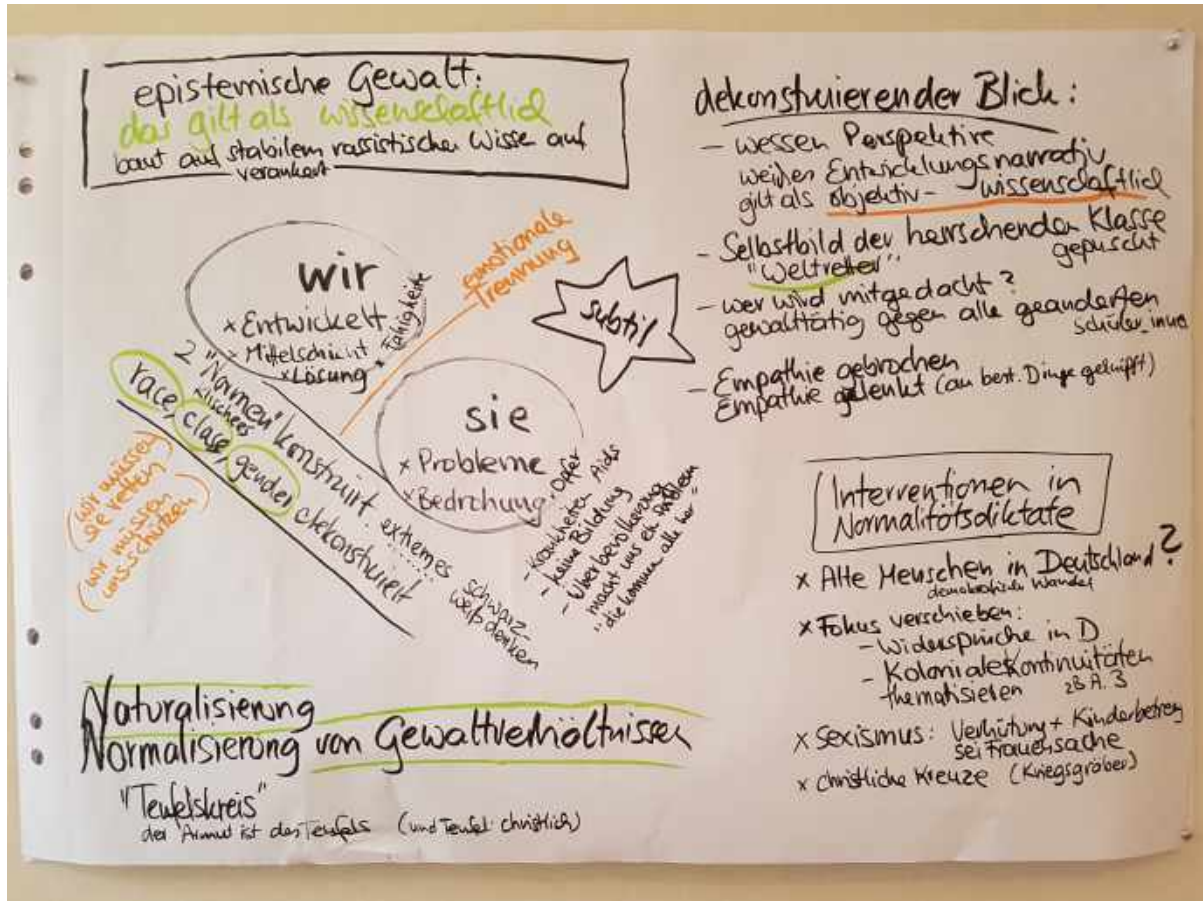 epistemische Gewalt:
das gilt als wissenschaftlich
baut auf stabilem rassistischen Wisse auf
verankert
wir
x Entwickelt
x Mittelschicht
x Lösung
x Fähigkeite
emotionale
Trennung
subtil
sie
x Probleme
x Bedrohung
, Opfer
- Krankheiten Aids
- keine Bildung
- Überbevölkerung
macht uns ein Problem
"die kommen alle her"
2 "Normen" konstruirt. extremes schwarz-
weißdenken
Klischees
race, class, gender dekonstruiert
(wir müssen
sie retten)
(wir müssen
uns schützen)
Naturalisierung
Normalisierung von Gewaltverhältnissen
"Teufelskreis"
der Armut ist des Teufels (und Teufel: christlich)
dekonstruierender Blick:
- wessen Perspektive
weißes Entwicklungsnarrativ
gilt als objektiv- wissenschaftlich
- Selbstbild der herrschenden Klasse
"Weltretter" gepuscht
- wer wird mitgedacht?
gewalttätig gegen alle geanderten
schüler_innen
- Empathie gebrochen
Empathie gelenkt (an best. Dinge geknüpft)
Interventionen in
Normalitätsdiktate
x Alte Menschen in Deutschland?
Wandel
x Fokus verschieben:
- Widersprüche in D
- Koloniale Kontinuitäten
thematisieren zB A. 3
x Sexismus: Verhütung + Kinderbetreu
sei Frauensache
x christliche Kreuze (Kriegsgräber)